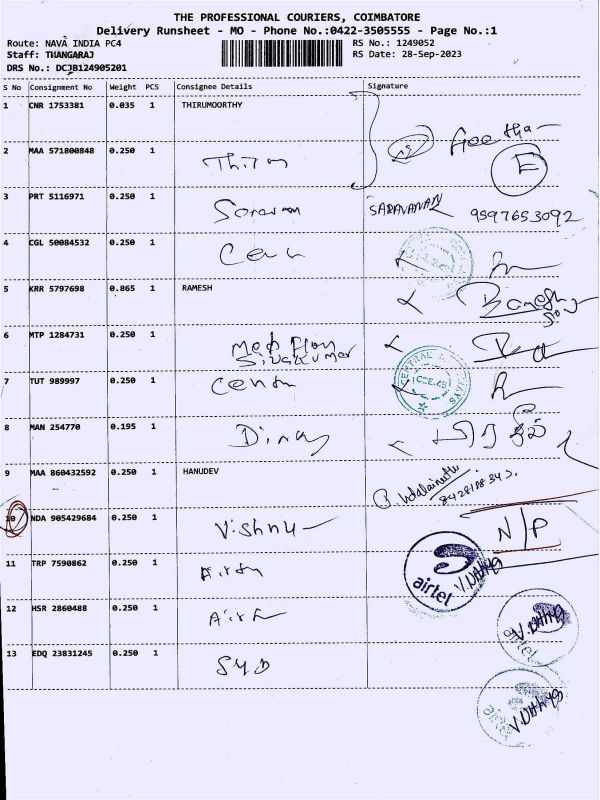 THE PROFESSIONAL COURIERS, COIMBATORE
Delivery Runsheet - MO - Phone No.:0422-3505555 - Page No.:1
Route: NAVA INDIA PC4 RS No.: 1249052
Staff: THANGARAJ RS Date: 28-Sep-2023
DRS No.: DCJB124905201
S No Consignment No Weight PCS Consignee Details Signature
1 CNR 1753381 0.035 1 THIRUMOORTHY
Geetha
2 MAA 571800848 0.250 1 E
3 PRT 5116971 0.250 1 SARAVANAN 9597653092
4 CGL 50084532 0.250 1
5 KRR 5797698 0.865 1 RAMESH Ramesh
6 MTP 1284731 0.250 1 Sivakumar
7 TUT 989997 0.250 1 CENTRAL
8 MAN 254770 0.195 1
9 MAA 860432592 0.250 1 HANUDEV
10 NDA 905429684 0.250 1 Vishnu N/P
11 TRP 7590862 0.250 1 airtel V.Dhhya
12 HSR 2860488 0.250 1 V.Dhhya
airtel
13 EDQ 23831245 0.250 1 SYD
V.Dhhya